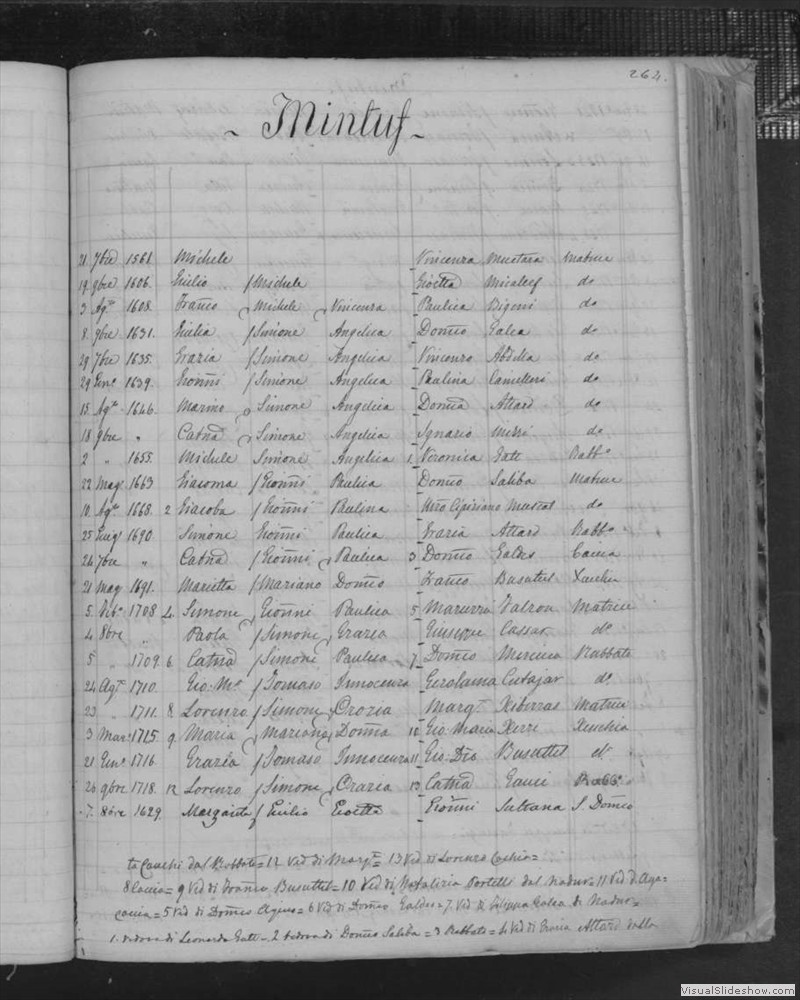 264.
- Mintuf -
21 7bre 1561 Michele Vincenza Mustara Matrice
19 9bre 1606. Giulio f Michele Gioetta Micaleef do
3 Ag.to 1608. Franco Michele Vincenza Paulica Bigeni do
8. 9bre 1631. Giulia f Simone Angelica Domco Galea do
29 7bre 1635. Grazia f Simone Angelica Vincenzo Abdilla do
29 Genº 1639. Gionni f Simone Angelica Paulina Camilleri do
15 Ag.to 1646. Marino Simone Angelica Domca Attard do
18 9bre " Catna Simone Angelica Ignazio Missi do
2 " 1655. Michele Simone Angelica 1 Veronica Gatt Rabbº
22 Magº 1663 Giacoma f Gionni Paulica Domco Saliba Matrice
10. Ag.to 1668. 2 Giacoba f Gionni Paulina do
25 1690. Simone Gionni Paulica Grazia Attard Rabbº
24 7bre " Catna f Gionni Paulica 3 Domco Galdes Caccia
21 Mag 1691. Marietta f Mariano Domca Franco Busuttil
5 1708 4 Simone Gionni Paulica 5 Matrice
4 8bre " Paola f Simone Grazia Giuseppe Cassar dº
5 " 1709. 6 Catna f Simone Paulica 7 Domca Rabbato
24 Ag.to 1710. Gio: Ma f Tomaso Innocenza Gerolama Cutajar dº
23 " 1711. 8 Lorenzo f Simone Orazia Margta Xiberras Matrice
3 Marº 1715. 9 Maria Mariano Domca 10 Gio: Maria Xerri
21 Genº 1716. Grazia f Tomaso Innocenza 11 Gio: Busuttil dº
26 9bre 1718. 12 Lorenzo f Simone Grazia 13 Catna Gauci Rabbº
7. 8bre 1629. Margarita f Giulio Gioetta Gionni Sultana S. Domco
ta Cauchi dal Rabbato = 12 Ved di Margta = 13 Ved di Lorenzo
8 Caccia = 9 Ved di Franco Busuttil = 10 Ved di Natalizia Portelli dal Nadur = 11 Ved d Aga=
caccia = 5 Ved di Domco = 6 Ved di Domco Galdes = 7. Ved di Filippa Galea di Nadur =
1. vedova di Leonardo Gatt = 2 vedova di Domco Saliba = 3 Rabbato = 4 Ved di Grazia Attard dalla
VisualSlideshow.com